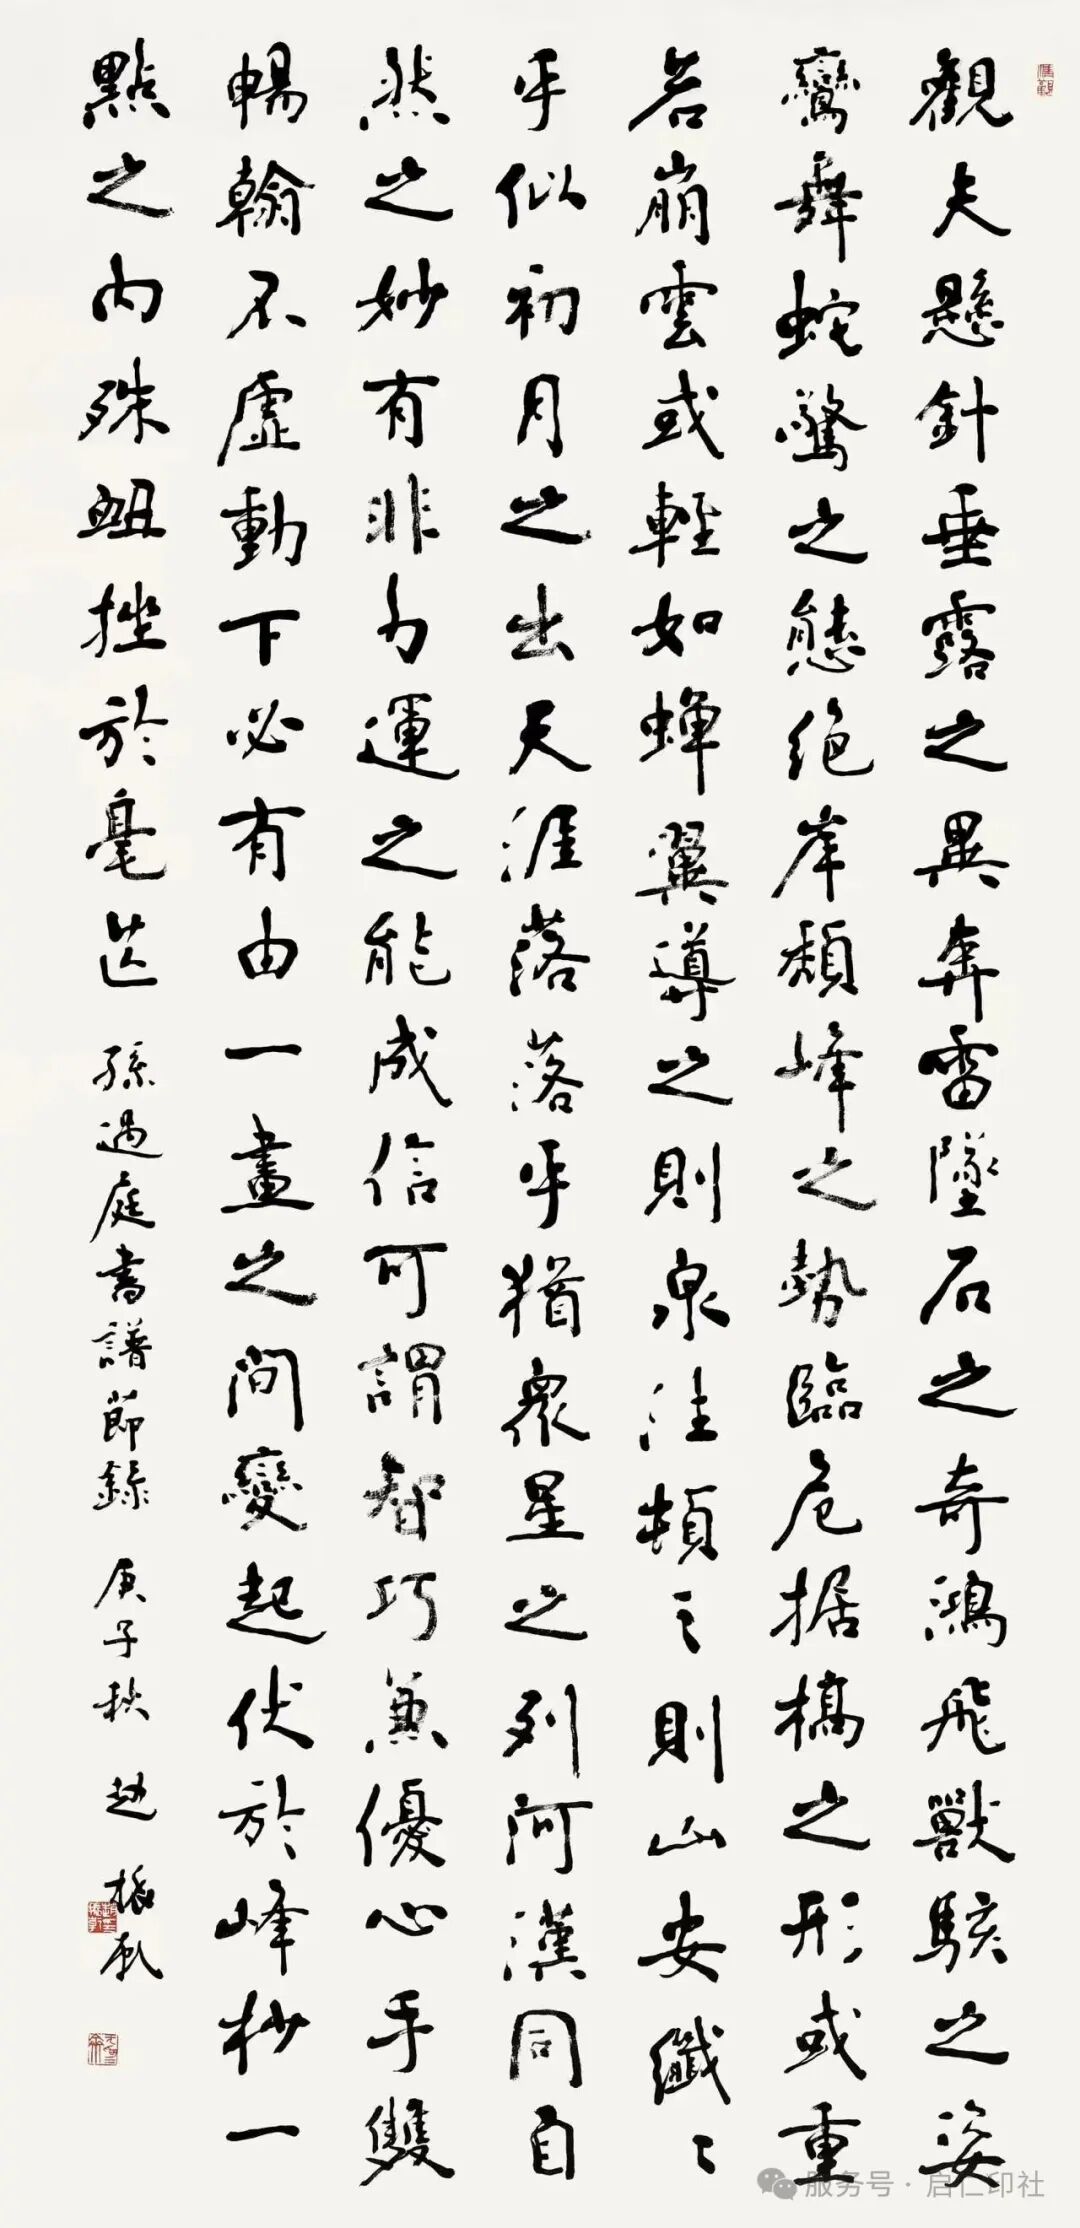 觀夫懸針垂露之異奔雷墜石之奇鴻飛獸駭之姿
鸞舞蛇驚之態絕岸頹峰之勢臨危据槁之形或重
若崩雲或輕如蟬翼導之則泉注頓之則山安纖〻
乎似初月之出天涯落落乎猶眾星之列河漢同自
然之妙有非力運之能成信可謂智巧兼優心手雙
暢翰不虛動下必有由一畫之間變起伏於峰杪一
點之內殊衄挫於毫芒 孫過庭書譜節錄 庚子秋 趙振
服务号 · 启仁印社